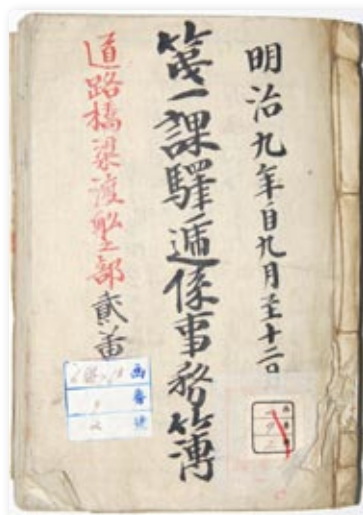 明治九年自九月至十二月
第一課驛逓係事務簿
道路橋梁渡船之部 貳番